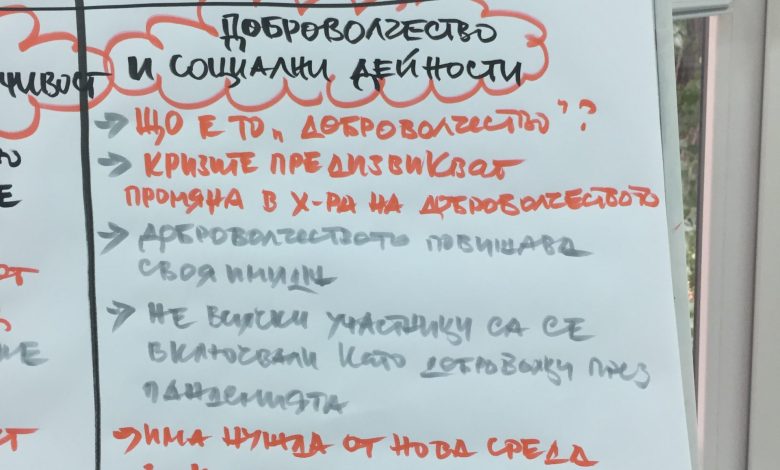 ДОБРОВОЛЧЕСТВО
И СОЦИАЛНИ ДЕЙНОСТИ
→ ЩО Е ТО „ДОБРОВОЛЧЕСТВО"?
→ КРИЗИТЕ ПРЕДИЗВИКВАТ
ПРОМЯНА В Х-РА НА ДОБРОВОЛЧЕСТВОТО
→ ДОБРОВОЛЧЕСТВОТО ПОВИШАВА
СВОЯ ИМИДЖ
→ НЕ ВСИЧКИ УЧАСТНИЦИ СА СЕ
ВКЛЮЧВАЛИ КАТО ДОБРОВОЛЦИ ПРЕЗ
ПАНДЕМИЯТА
→ ИМА НУЖДА ОТ НОВА СРЕДА